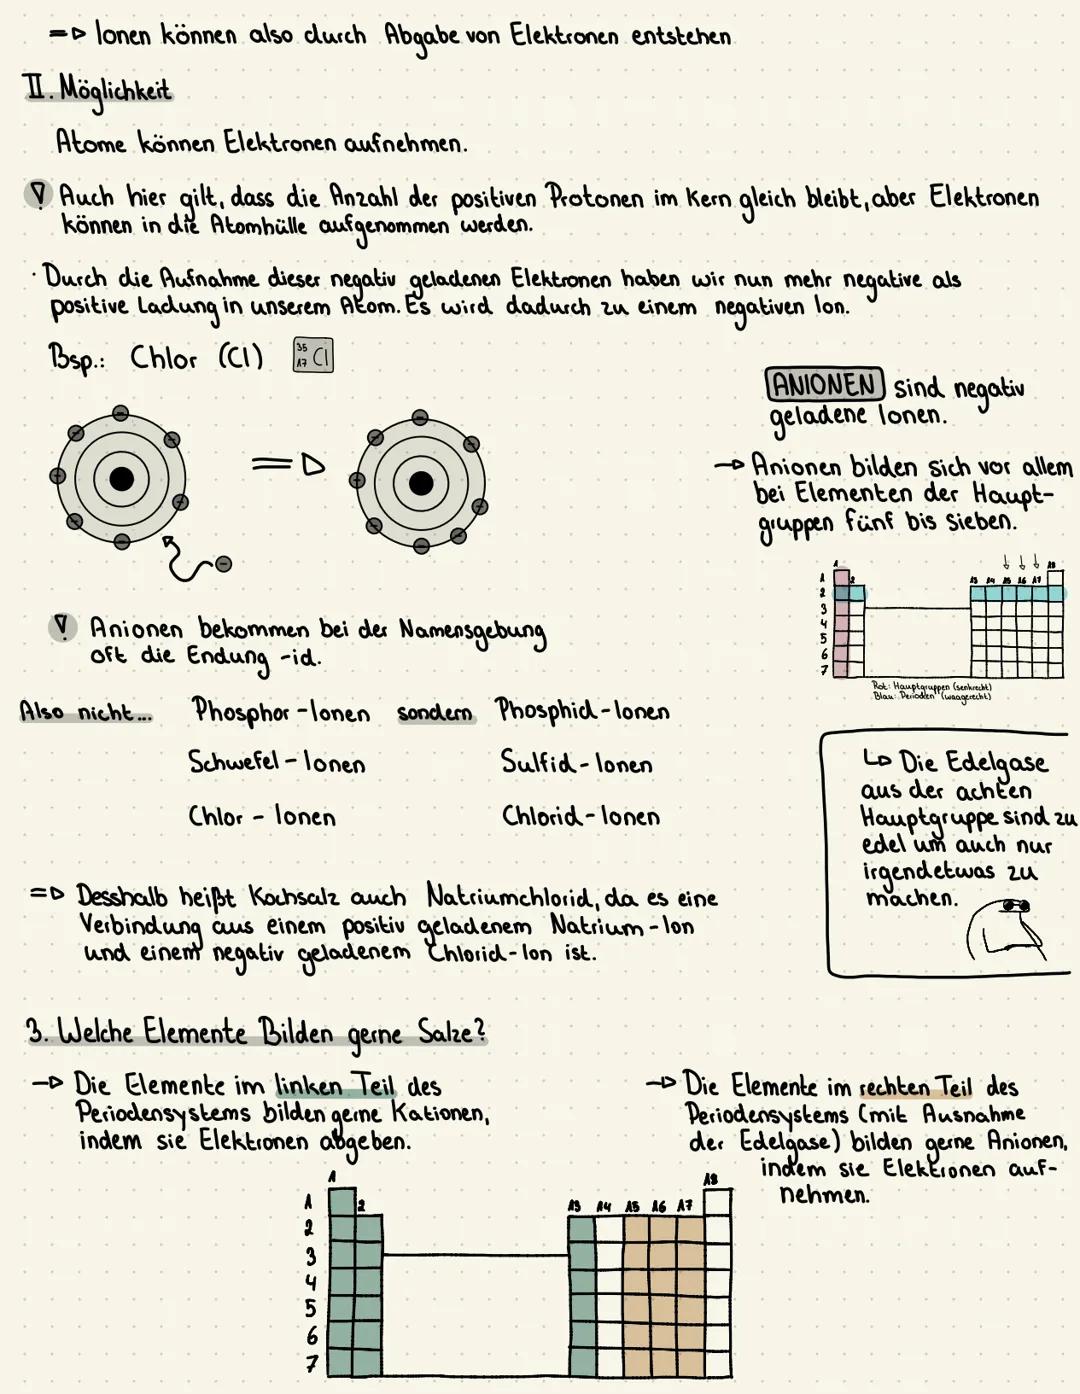 => Ionen können also durch Abgabe von Elektronen entstehen
II. Möglichkeit
Atome können Elektronen aufnehmen.
! Auch hier gilt, dass die Anzahl der positiven Protonen im Kern gleich bleibt, aber Elektronen
können in die Atomhülle aufgenommen werden.
· Durch die Aufnahme dieser negativ geladenen Elektronen haben wir nun mehr negative als
positive Ladung in unserem Atom. Es wird dadurch zu einem negativen Ion.
Bsp.: Chlor (Cl)
35
17 Cl
ANIONEN sind negativ
geladene Ionen.
→ Anionen bilden sich vor allem
bei Elementen der Haupt-
gruppen fünf bis sieben.
1
18
1 2 13 14 15 16 17
2
3
4
5
6
7
Rot: Hauptgruppen (senkrecht)
Blau: Perioden (waagerecht)
! Anionen bekommen bei der Namensgebung
oft die Endung -id.
Also nicht... Phosphor-Ionen sondern Phosphid-Ionen
Schwefel-Ionen Sulfid-Ionen
Chlor-Ionen Chlorid-Ionen
↳ Die Edelgase
aus der achten
Hauptgruppe sind zu
edel um auch nur
irgendetwas zu
machen.
=> Desshalb heißt Kochsalz auch Natriumchlorid, da es eine
Verbindung aus einem positiv geladenem Natrium-Ion
und einem negativ geladenem Chlorid-Ion ist.
3. Welche Elemente Bilden gerne Salze?
→ Die Elemente im linken Teil des
Periodensystems bilden gerne Kationen,
indem sie Elektronen abgeben.
→ Die Elemente im rechten Teil des
Periodensystems (mit Ausnahme
der Edelgase) bilden gerne Anionen,
indem sie Elektronen auf-
nehmen.
1 18
1 2 13 14 15 16 17
2
3
4
5
6
7